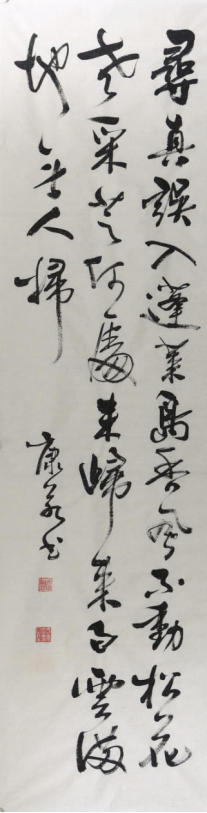 尋真誤入蓬萊島香風不動松花
老采芝何處未歸來白雲滿
地無人掃